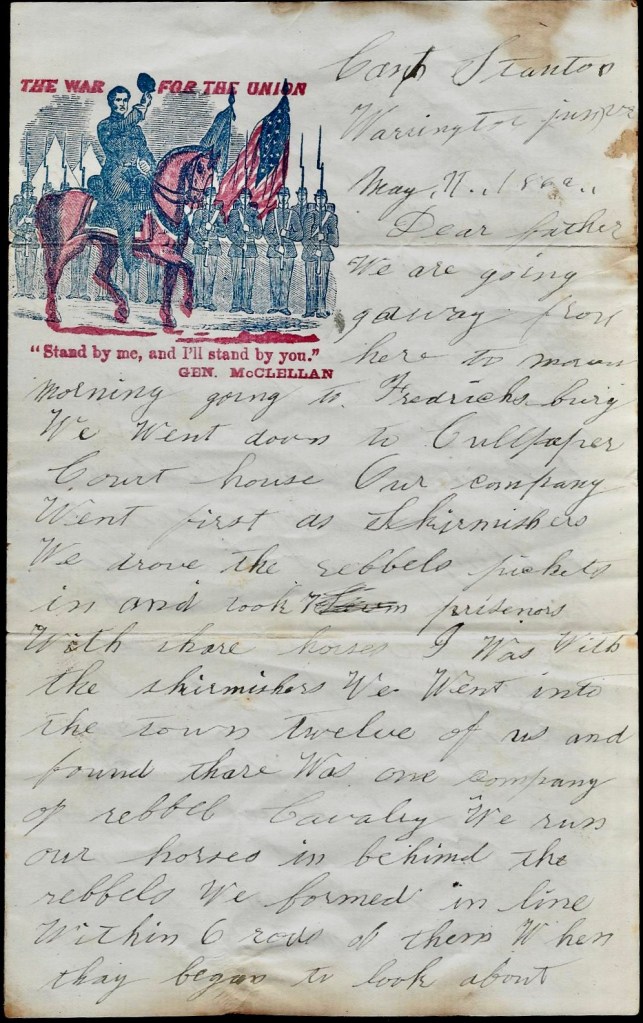 THE WAR FOR THE UNION
"Stand by me, and I'll stand by you."
GEN. McCLELLAN
Camp Stanton
Warrington
May 11., 1862.,
Dear father
We are going
away from
here to morow
morning going to Fredrichsburg
We Went down to Cullpaper
Court house Our company
Went first as Skirmishers
We drove the rebbels pickets
in and took prisenors
With thare horses I Was With
the skirmishers We Went into
the town twelve of us and
found thare Was one company
of rebbel Cavalry We run
our horses in behind the
rebbels We formed in line
Within 6 rods of them When
thay began to look about